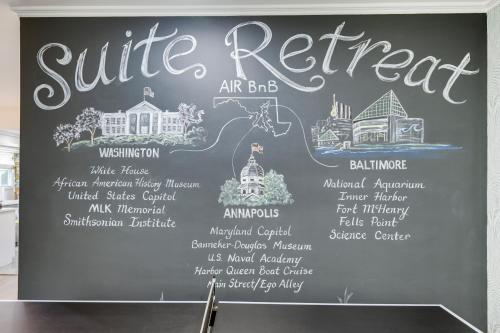 Suite Retreat
AIR BnB
WASHINGTON
White House
African American History Museum
United States Capitol
MLK Memorial
Smithsonian Institute
ANNAPOLIS
Maryland Capitol
Banneker-Douglas Museum
U.S. Naval Academy
Harbor Queen Boat Cruise
Main Street/Ego Alley
BALTIMORE
National Aquarium
Inner Harbor
Fort McHenry
Fells Point
Science Center